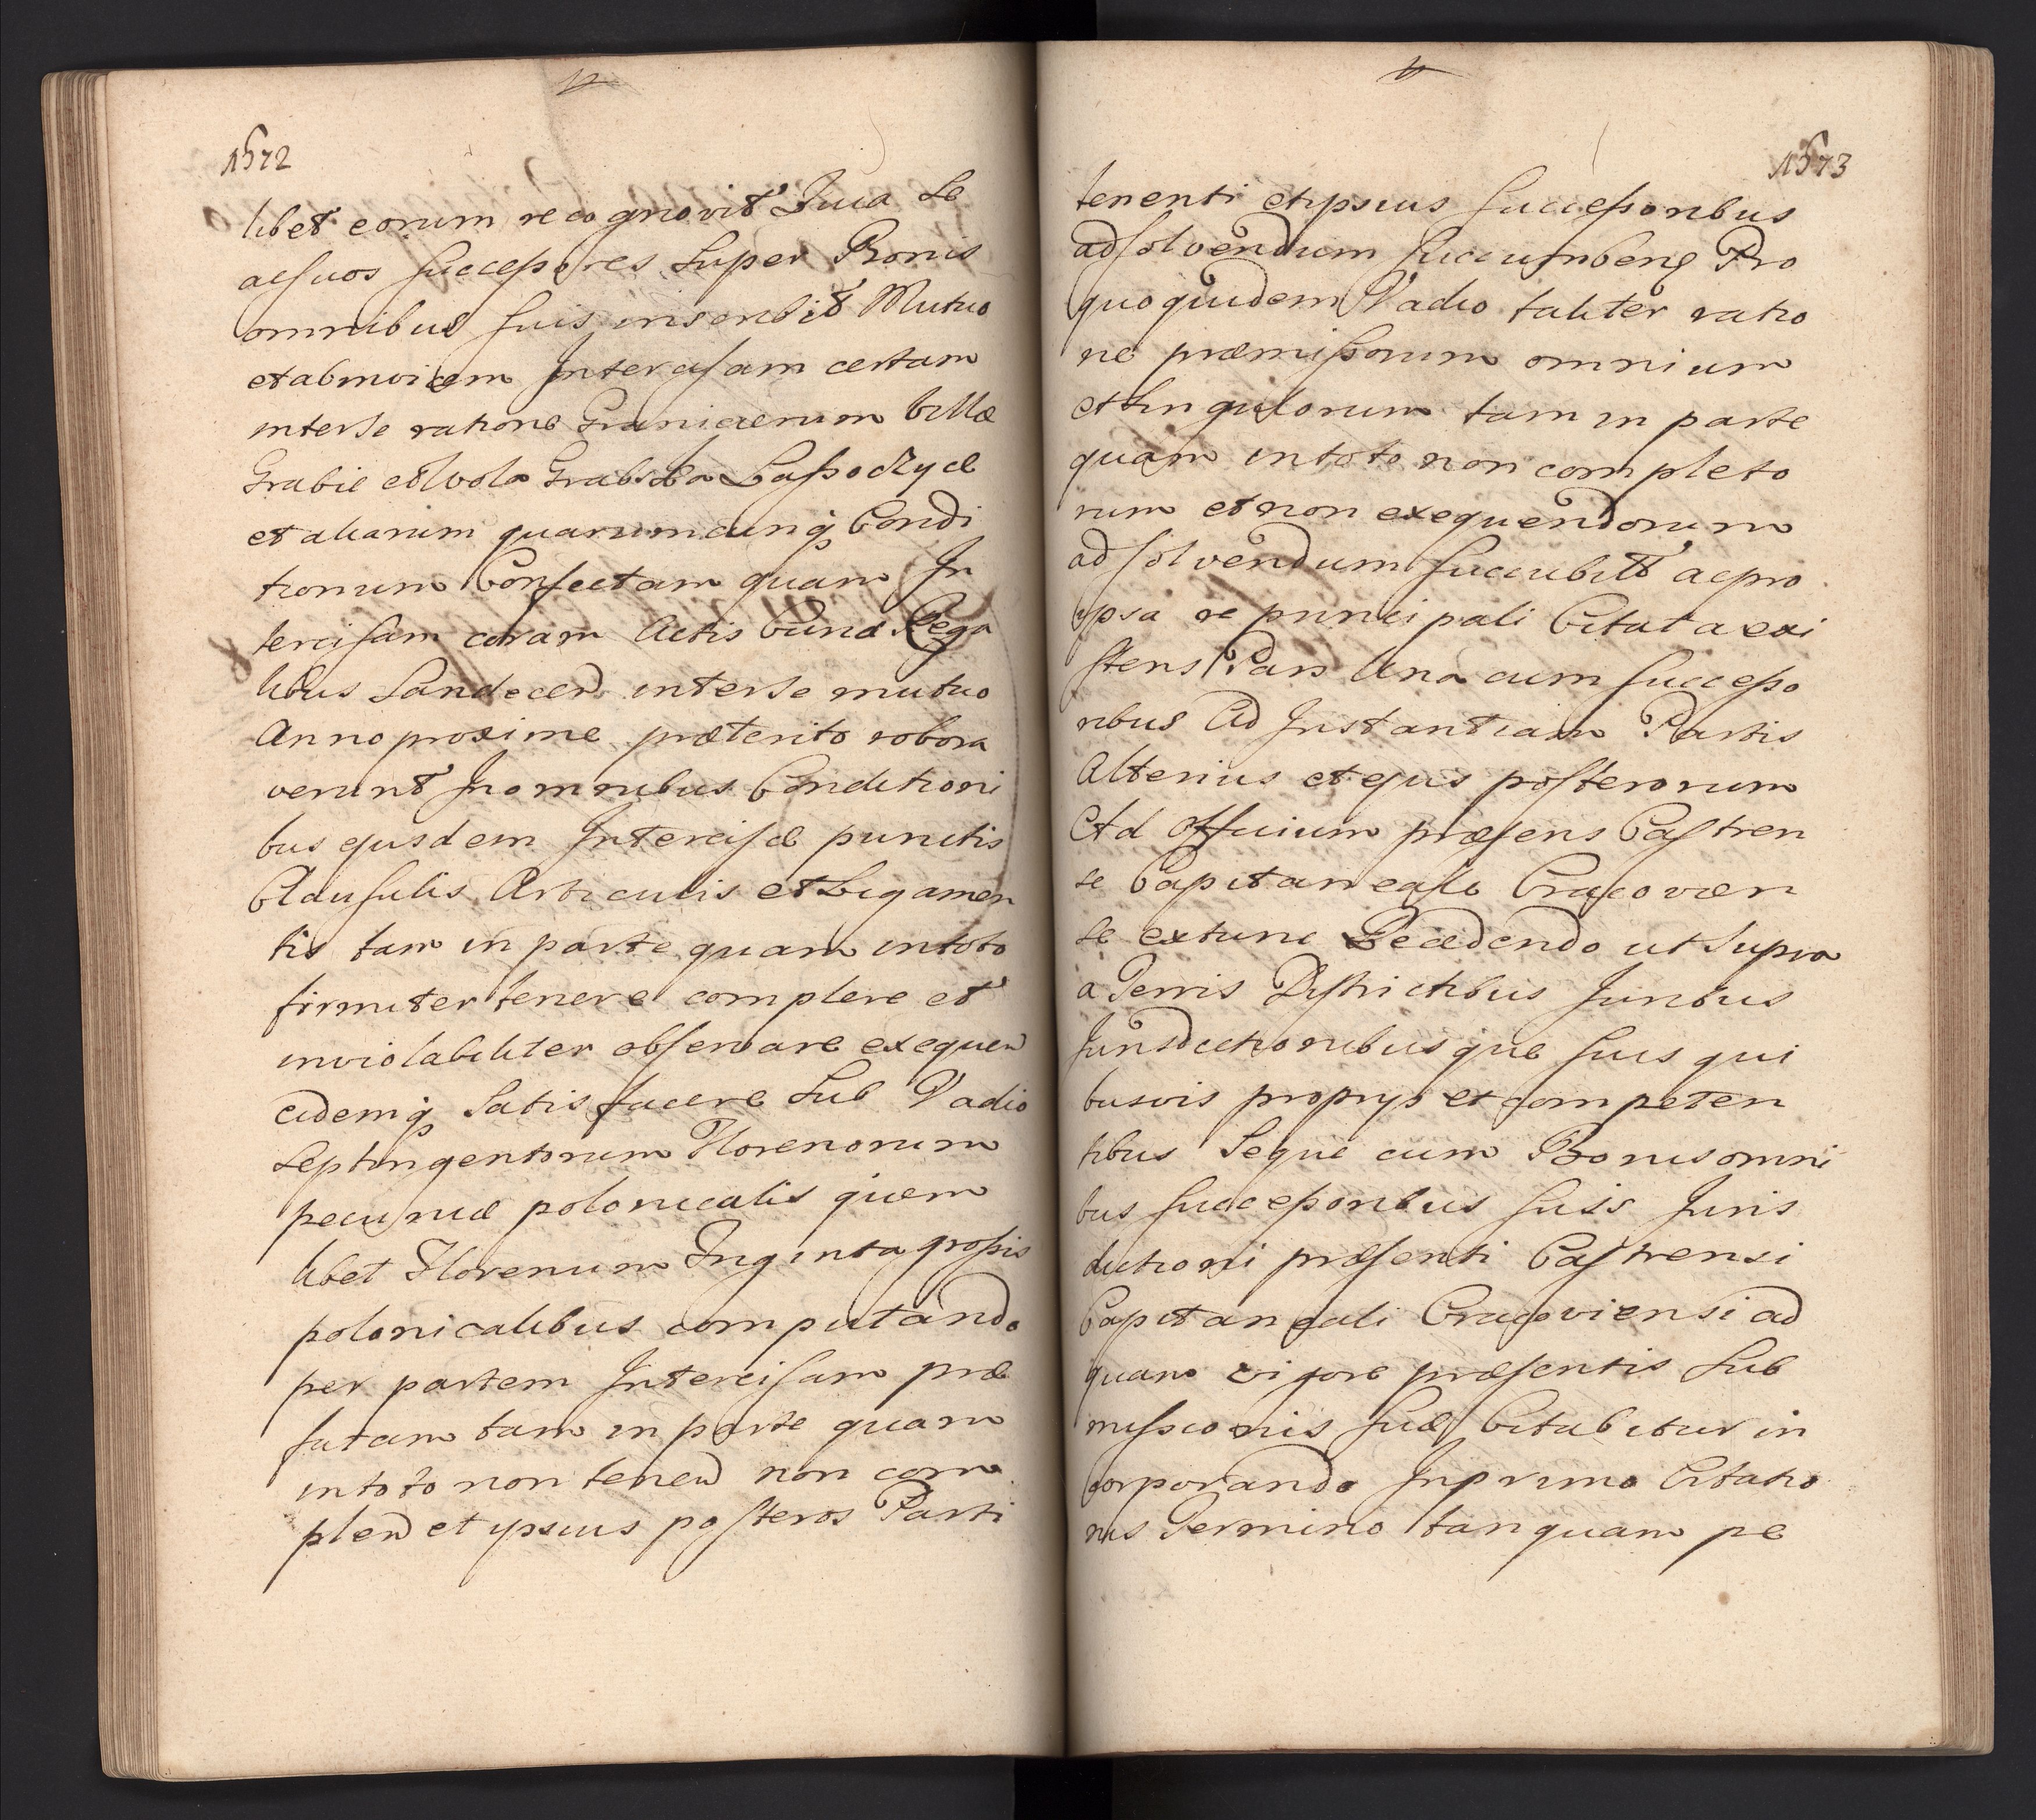 1572
libet eorum recognovit Quia Se
acsuos successores super Bonis
omnibus suis inscribit Mutuo
etabinvicem Intercisam certam
interse ratione Granicierum Villæ
Grabie etWola Grabska Lassodzyce
et aliarum quarumcunq Condi
tionum Confectam quam In
tercisam coram Actis Rega
libus Sandecen interse mutuo
Anno proxime præterito robora
verunt Inomnibus Conditioni
bus ejusdem Intercisæ punctis
Clausulis Articulis etLigamen
tis tam in parte quam intoto
firmiter tenere complere et
inviolabiliter observare exequen
eidemq Satisfacere Sub Vadio
Septingentorum Florenorum
pecuniæ polonicalis quem
libet Florenum Triginta grossis
polonicalibus computando
per partem Intercisam præ
fatam tam in parte quam
intoto non tenen non com
plen et ipsius posteros Parti
1573
tenenti etipsius successoribus
adsolvendum succumbens Pro
quoquidem Vadio taliter ratio
ne præmissorum omnium
etsingulorum tam in parte
quam intoto non completo
rum etnon exequendorum
ad solvendum succubitt acpro
ipsa re principali Citata exi
stens Pars Una cum successo
ribus Ad Instantiam Partis
Alterius etejus posterorum
Ad officium præsens Castren
se Capitaneale Cracovien
se extunc Recedendo ut supra
a Terris Districtibus Juribus
Jurisdictionibusque suis qui
busvis proprys et competen
tibus Seque cum Bonisomni
bus successoribus suis Juris
dictioni præsenti Castrensi
Capitaneali Cracoviensi ad
quam vigore præsentis Sub
missionis suæ Citabitur in
corporando Inprimo Citatio
nis Termino tanquam pe